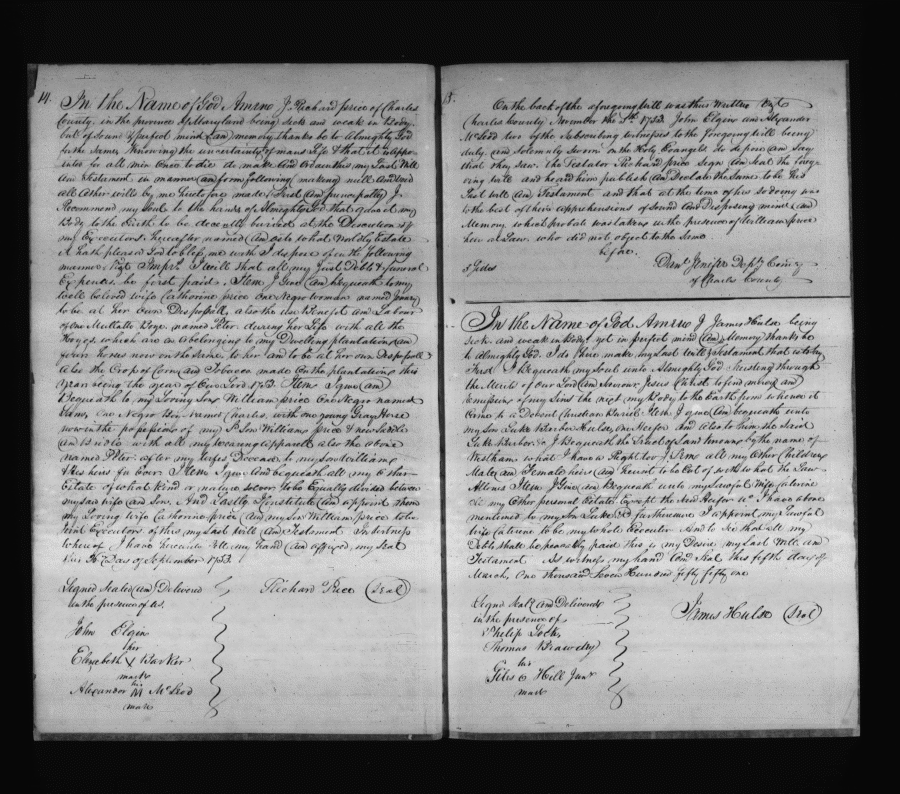 14.
In the Name of God Amen I Richard Price of Charles
County, in the province of Maryland being sick and weak in Body
but of sound & perfect mind and memory thanks be to Almighty God
for the same, Knowing the uncertainty of mans Life & that it is appo-
inted for all men once to die do make and Ordain this my Last Will
and Testament in manner and form following making null and void
all other wills by me heretofore made, First and principally I
Recommend my Soul to the hands of Almighty God that gave it my
Body to the Earth to be decently burried at the Discretion of
my Executors hereafter named and as to what Worldly Estate
it hath pleased God to bless me with I dispose of in the following
manner, Imprs. I will that all my Just Debts & funeral
Expences be first paid. Item I Give and bequeath to my
well beloved wife Catherine price one Negro woman named
to be at her own Disposall, also the use Benefit and Labour
of one Mullatto Boye named Peter during her Life with all the
which are a belonging to my Dwelling plantation and
four horses now on the same to her and to be at her own Disposall
also the Crop of Corn and Tobacco made on the plantations this
year being the year of Our Lord 1753. Item I give and
Bequeath to my Loving Son William price One Negro named
One Negro named Charles, with one young Gray Horse
now in the possession of my Sd. Son William price & new Saddle
and Bridle with all my wearing apparell also the above
named Peter after my wifes Decease to my son William
& his heirs for Ever. Item I give and bequeath all my Other
Estate of what kind or nature soever to be Equally divided between
my said wife and Son, And Lastly I Constitute and appoint them
my Loving wife Catherine price and my Son William price to be
Joint Executors of this my Last Will and Testament In witness
whereof I have hereunto set my hand and affixed my seal
this Day of September 1753.
Signed Sealed and Delivered Richard Price (Seal)
in the presence of us.
John Elgin
her
Elizabeth X Barker
mark
his
Alexander M McLeod
mark
15.
On the back of the aforegoing will was thus Written Vizt.
Charles County November the 1753. John Elgin and Alexander
McLeod two of the Subscribing witnesses to the foregoing will being
duly and Solemnly Sworn on the Holy Evangels do depose and say
that they saw the Testator Richard price Sign and Seal the forego-
ing will and heard him publish and Declare the same to be his
Last will and Testament and that at the time of his so doing was
to the best of their apprehensions of Sound and Disposing mind and
Memory which probate was taken in the presence of William price
heir at Law, who did not object to the same
before
5 sides Danl. Jenifer Depty Comry
of Charles County
In the Name of God Amen I James Hulse being
sick and weak in Body yet in perfect mind and Memory thanks be
to Almighty God. I do here make my last will & Testament that is to say
First I Bequeath my Soul unto Almighty God trusting through
the Merits of our Lord and Saviour Jesus Christ to find mercy and
remission of my Sins the next my Body to the Earth from whence it
Came to a Decent Christian Burial Item I give and bequeath unto
my Son Luke Barber Hulse, one Heifer And also to him the said
Luke Barber I Bequeath the of Land known by the name of
Westham what I have a Right too I Leave all my Other Children
Males and Females heirs and to be Cut of with what the Law
Allows Item I Give and Bequeath unto my Lawful wife
all my Other personal Estate, Except the Heifer wc. I have above
mentioned to my Son Luke & furthermore I appoint my Lawful
wife to be my whole Executor And to see that all my
Debts shall be peaceably paid this is my Desire my Last Will and
Testament As witness my hand and Seal this fifth day of
March, One thousand Seven Hundred fifty one
Signd Seald and Deliverd James Hulse (Seal)
in the presence of
Philip Lock,
Thomas Brawdly
his
Giles o Hill Junr
mark